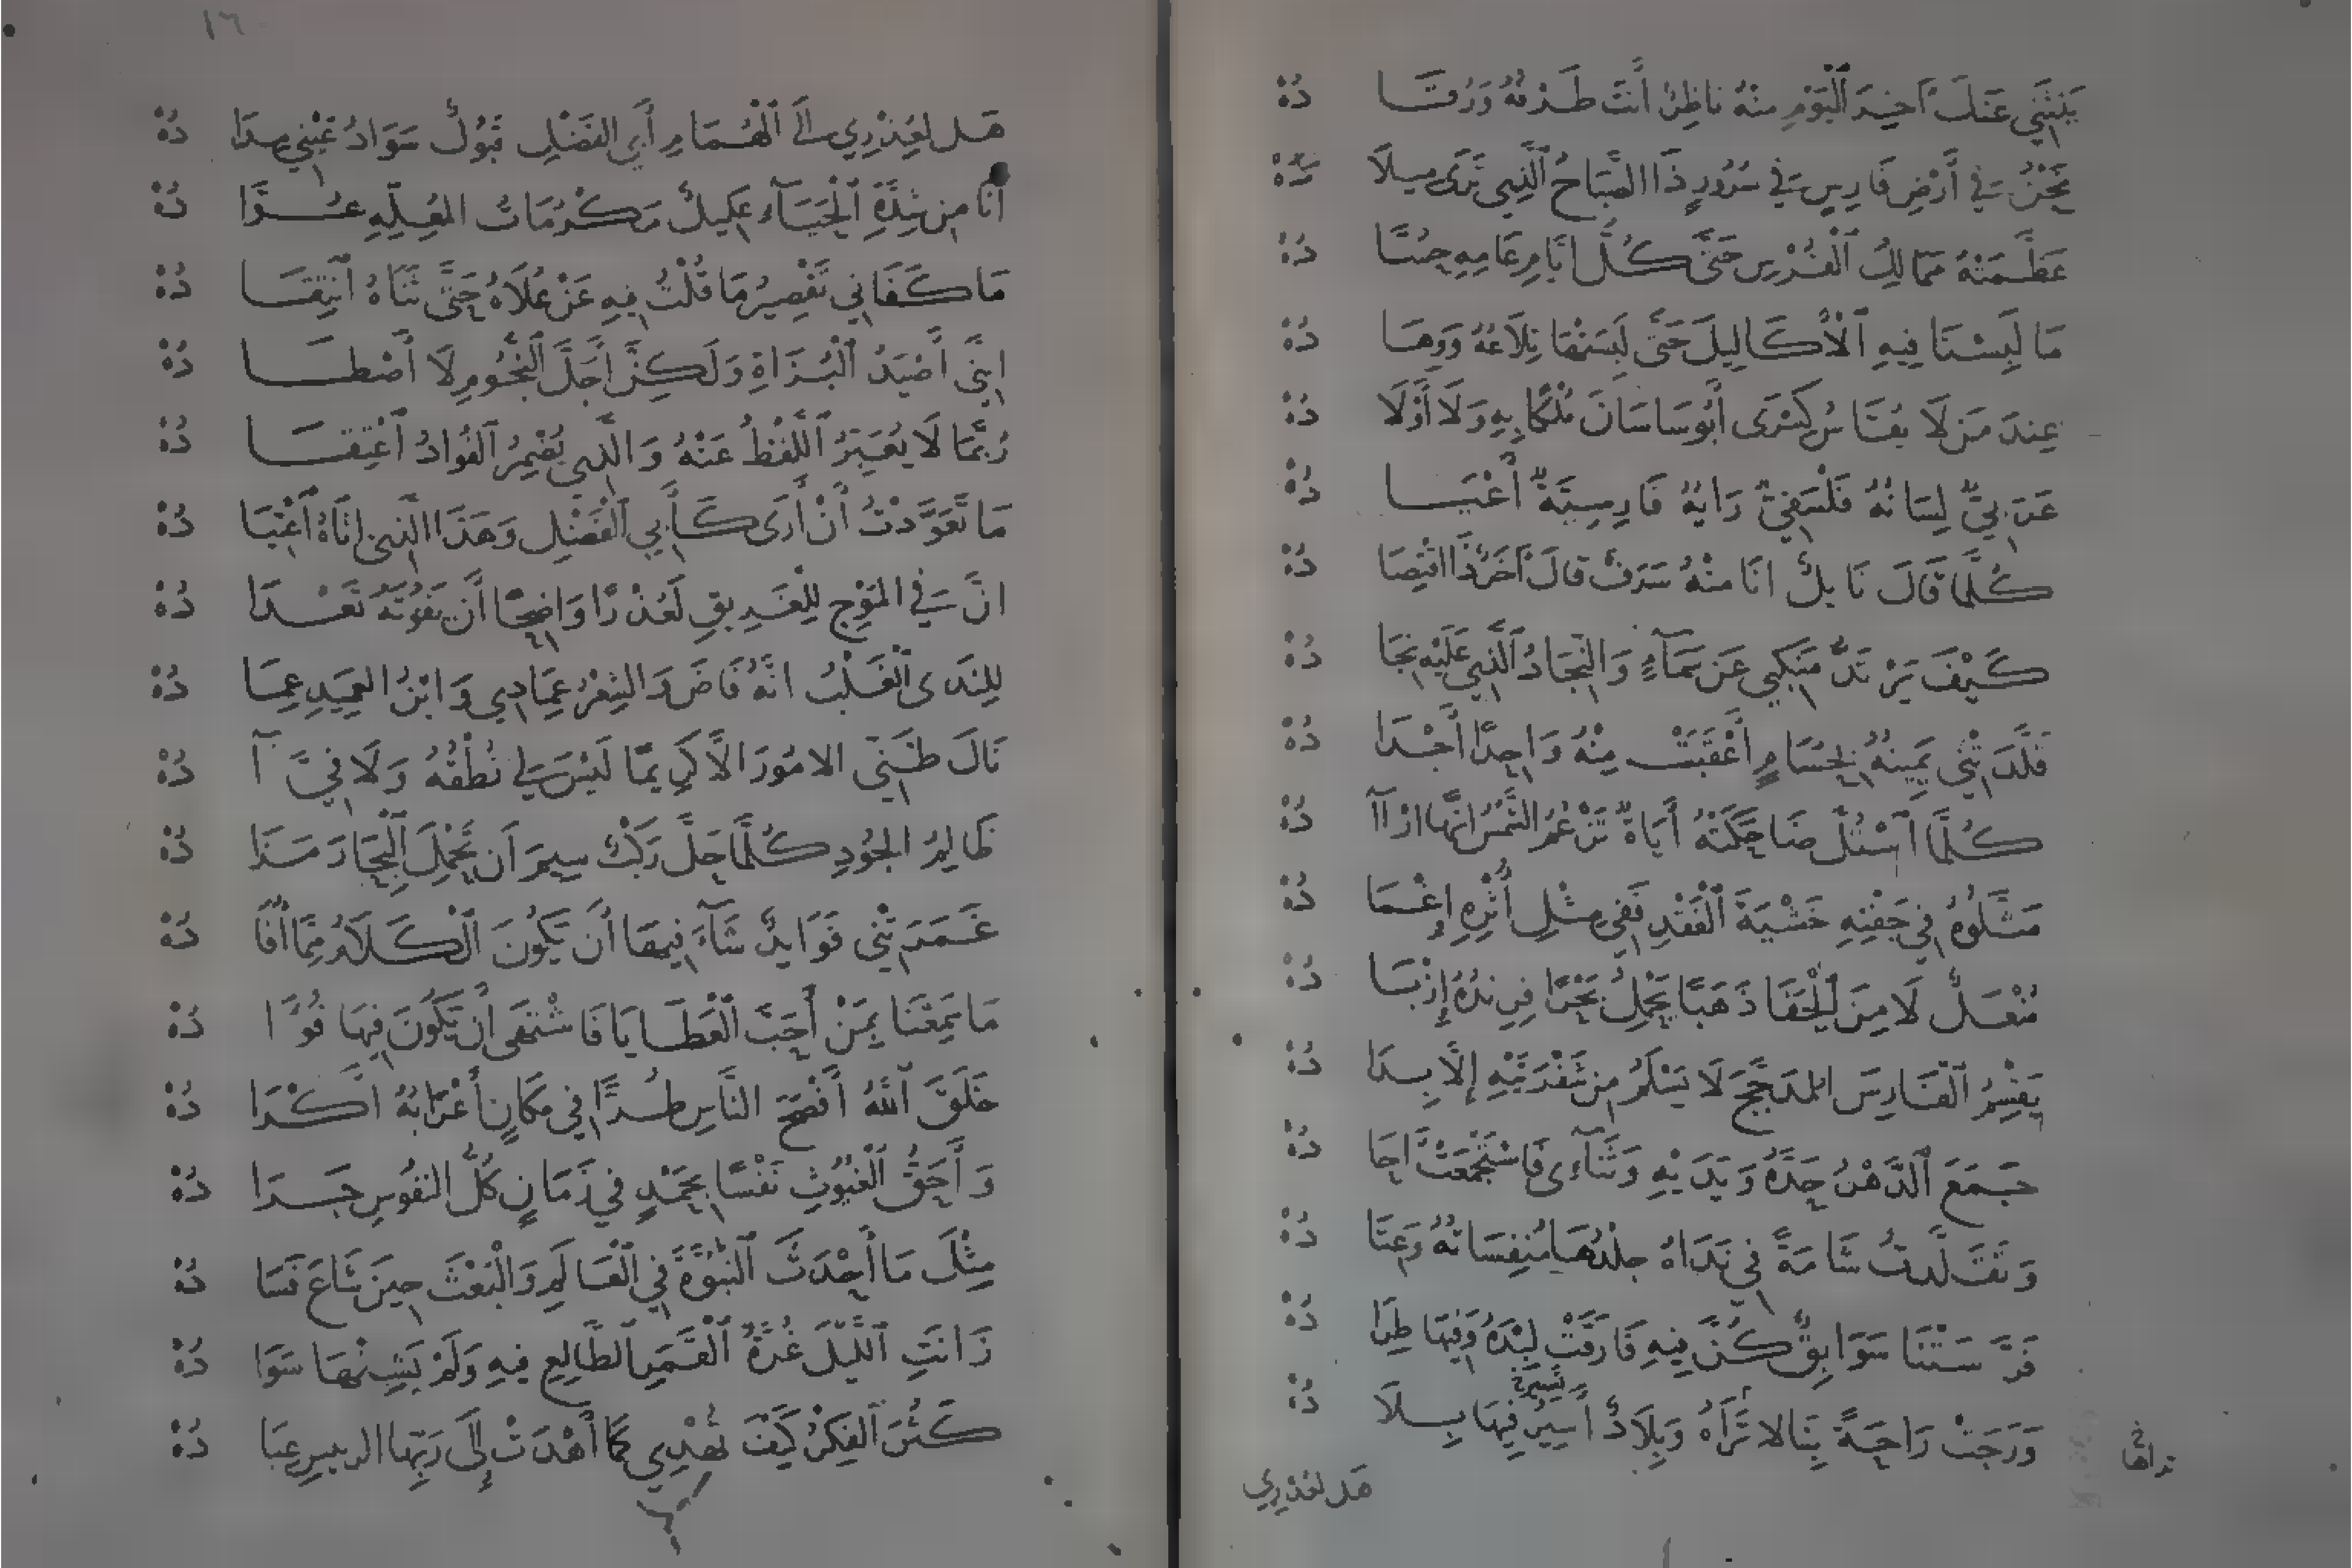 يَنْثَنِي عَنْكَ آخِرَ الْيَوْمِ مِنْهُ نَاظِرٌ أَنْتَ طَرْفُهُ وَرُقَا دُهْ
نَحْنُ فِي أَرْضِ فَارِسٍ فِي سُرُورٍ ذَا الصَّبَاحُ الَّذِي تَرَى مِيلَا دُهْ
عَظَّمَتْهُ مَمَالِكُ الْفُرْسِ حَتَّى كُلُّ أَيَّامِ عَامِهِ حُسَّا دُهْ
مَا لَبِسْنَا فِيهِ الْأَكَالِيلَ حَتَّى لَبِسَتْهَا تِلَاعُهُ وَوِهَا دُهْ
عِنْدَ مَنْ لَا يُقَاسُ كِسْرَى أَبُو سَاسَانَ مُلْكًا بِهِ وَلَا أَوْلَا دُهْ
عَرَبِيٌّ لِسَانُهُ فَلْسَفِيٌّ رَأْيُهُ فَارِسِيَّةٌ أَعْيَا دُهْ
كُلَّمَا قَالَ نَائِلٌ أَنَا مِنْهُ سَرَفٌ قَالَ آخَرٌ ذَا اقْتِصَا دُهْ
كَيْفَ يَرْتَدُّ مَنْكِبِي عَنْ سَمَاءٍ وَالنِّجَادُ الَّذِي عَلَيْهِ نِجَا دُهْ
قَلَّدَتْنِي يَمِينُهُ بِحُسَامٍ أَعْقَبَتْ مِنْهُ وَاحِدًا أَجْدَا دُهْ
كُلَّمَا اسْتُلَّ ضَاحَكَتْهُ أَيَاةٌ تَزْعُمُ الشَّمْسُ أَنَّهَا أَرْآ دُهْ
مَثَّلُوهُ فِي جَفْنِهِ خَشْيَةَ الْفَقْدِ فَفِي مِثْلِ أَثْرِهِ إِغْمَا دُهْ
مُنْعَلٌ لَا مِنَ الْحَفَا ذَهَبًا يَحْمِلُ بَحْرًا فِرِنْدُهُ إِزْبَا دُهْ
يَقْسِمُ الْفَارِسَ الْمُدَجَّجَ لَا يَسْلَمُ مِنْ شَفْرَتَيْهِ إِلَّا بِدَا دُهْ
جَمَعَ الدَّهْرُ حَدَّهُ وَيَدَيْهِ وَثَنَاءِي فَاسْتَجْمَعَتْ آحَا دُهْ
وَتَقَلَّدْتُ شَامَةً فِي نَدَاهُ جِلْدُهَا مُنْفِسَاتُهُ وَعَتَا دُهْ
فَرَّسَتْنَا سَوَابِقٌ كُنَّ فِيهِ فَارَقَتْ لِبْدَهُ وَفِيهَا طِرَا دُهْ
وَرَجَتْ رَاحَةً بِنَا لَا تَرَاهُ وَبِلَادٌ أَسِيرُ فِيهَا بِلَا دُهْ
نَسِيرُ
تراها
هَل لعُذْرِي
١٦٠
هَلْ لِعُذْرِي إِلَى الْهُمَامِ أَبِي الْفَضْلِ قَبُولٌ سَوَادُ عَيْنِي مِدَا دُهْ
أَنَا مِنْ شِدَّةِ الْحَيَاءِ عَلِيلٌ مَكْرُمَاتُ الْمُعِلِّهِ عُوَّا دُهْ
مَا كَفَانِي تَقْصِيرُ مَا قُلْتُ فِيهِ عَنْ عُلَاهُ حَتَّى ثَنَاهُ انْتِقَا دُهْ
إِنَّنِي أَصْيَدُ الْبُزَاةِ وَلَكِنَّ أَجَلَّ النُّجُومِ لَا أَصْطَا دُهْ
رُبَّمَا لَا يُعَبِّرُ اللَّفْظُ عَنْهُ وَالَّذِي يُضْمِرُ الْفُؤَادُ اعْتِقَا دُهْ
مَا تَعَوَّدْتُ أَنْ أَرَى كَأَبِي الْفَضْلِ وَهَذَا الَّذِي أَتَاهُ اعْتِيَا دُهْ
إِنَّ فِي الْمَوْجِ لِلْغَرِيقِ لَعُذْرًا وَاضِحًا أَنْ يَفُوتَهُ تَعْدَا دُهْ
لِلنَّدَى الْغَلْبُ أَنَّهُ فَاضَ وَالشِّعْرُ عِمَادِي وَابْنُ الْعَمِيدِ عِمَا دُهْ
نَالَ ظَنِّي الْأُمُورَ إِلَّا كَرِيمًا لَيْسَ لِي نُطْقُهُ وَلَا فِيَّ آ دُهْ
ظَالِمُ الْجُودِ كُلَّمَا حَلَّ رَكْبٌ سِيمَ أَنْ تَحْمِلَ الْبِحَارَ مَزَا دُهْ
غَمَرَتْنِي فَوَائِدٌ شَاءَ فِيهَا أَنْ يَكُونَ الْكَلَامُ مِمَّا أُفَا دُهْ
مَا سَمِعْنَا بِمَنْ أَحَبَّ الْعَطَايَا فَاشْتَهَى أَنْ يَكُونَ فِيهَا فُؤَا دُهْ
خَلَقَ اللَّهُ أَفْصَحَ النَّاسِ طُرًّا فِي مَكَانٍ أَعْرَابُهُ أَكْرَا دُهْ
وَأَحَقُّ الْغُيُوثِ نَفْسًا بِحَمْدٍ فِي زَمَانٍ كُلُّ النُّفُوسِ جَرَا دُهْ
مِثْلَ مَا أَحْدَثَ النُّبُوَّةَ فِي الْعَالَمِ وَالْبَعْثَ حِينَ شَاعَ فَسَا دُهْ
زَانَتِ اللَّيْلَ غُرَّةُ الْقَمَرِ الطَّالِعِ فِيهِ وَلَمْ يَشِنْهَا سَوَا دُهْ
كَثُرَ الْفِكْرُ كَيْفَ نُهْدِي كَمَا أَهْدَتْ إِلَى رَبِّهَا الرَّئِيسِ عِبَا دُهْ